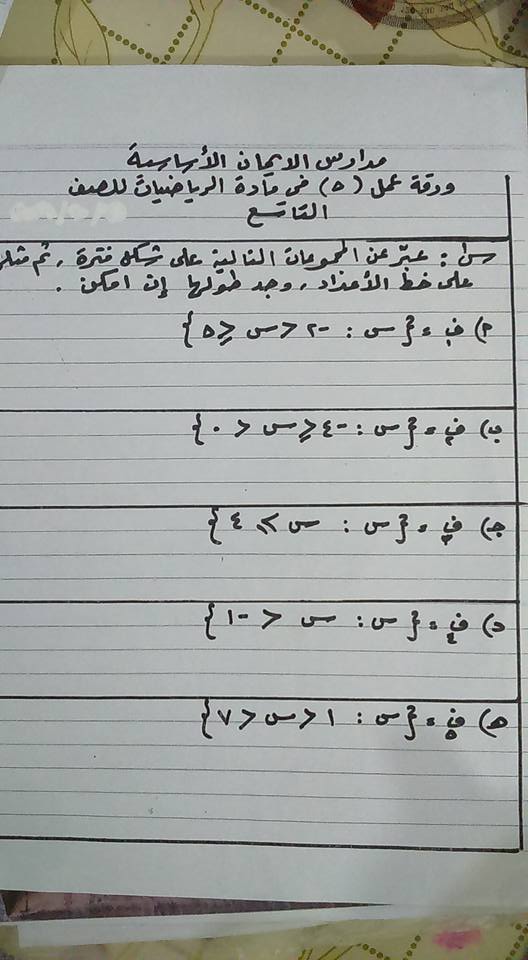 مدارس الايمان الأساسية
ورقة عمل (٥) في مادة الرياضيات للصف
التاسع
س١: عبّر عن المجموعات التالية على شكل فترة، ثم مثلها
على خط الأعداد، وجد طولها إن امكن.
أ) ف١ = {س : -٢ < س ≤ ٥}
ب) ف٢ = {س : -٤ ≤ س < ٠}
ج) ف٣ = {س : س ≥ ٤}
د) ف٤ = {س : س < -١}
هـ) ف٥ = {س : ١ < س < ٧}